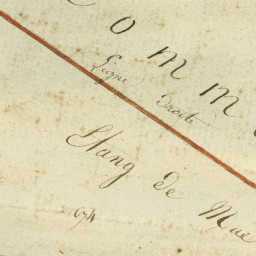 omm
Ligne Droite
Etang De Mau
674